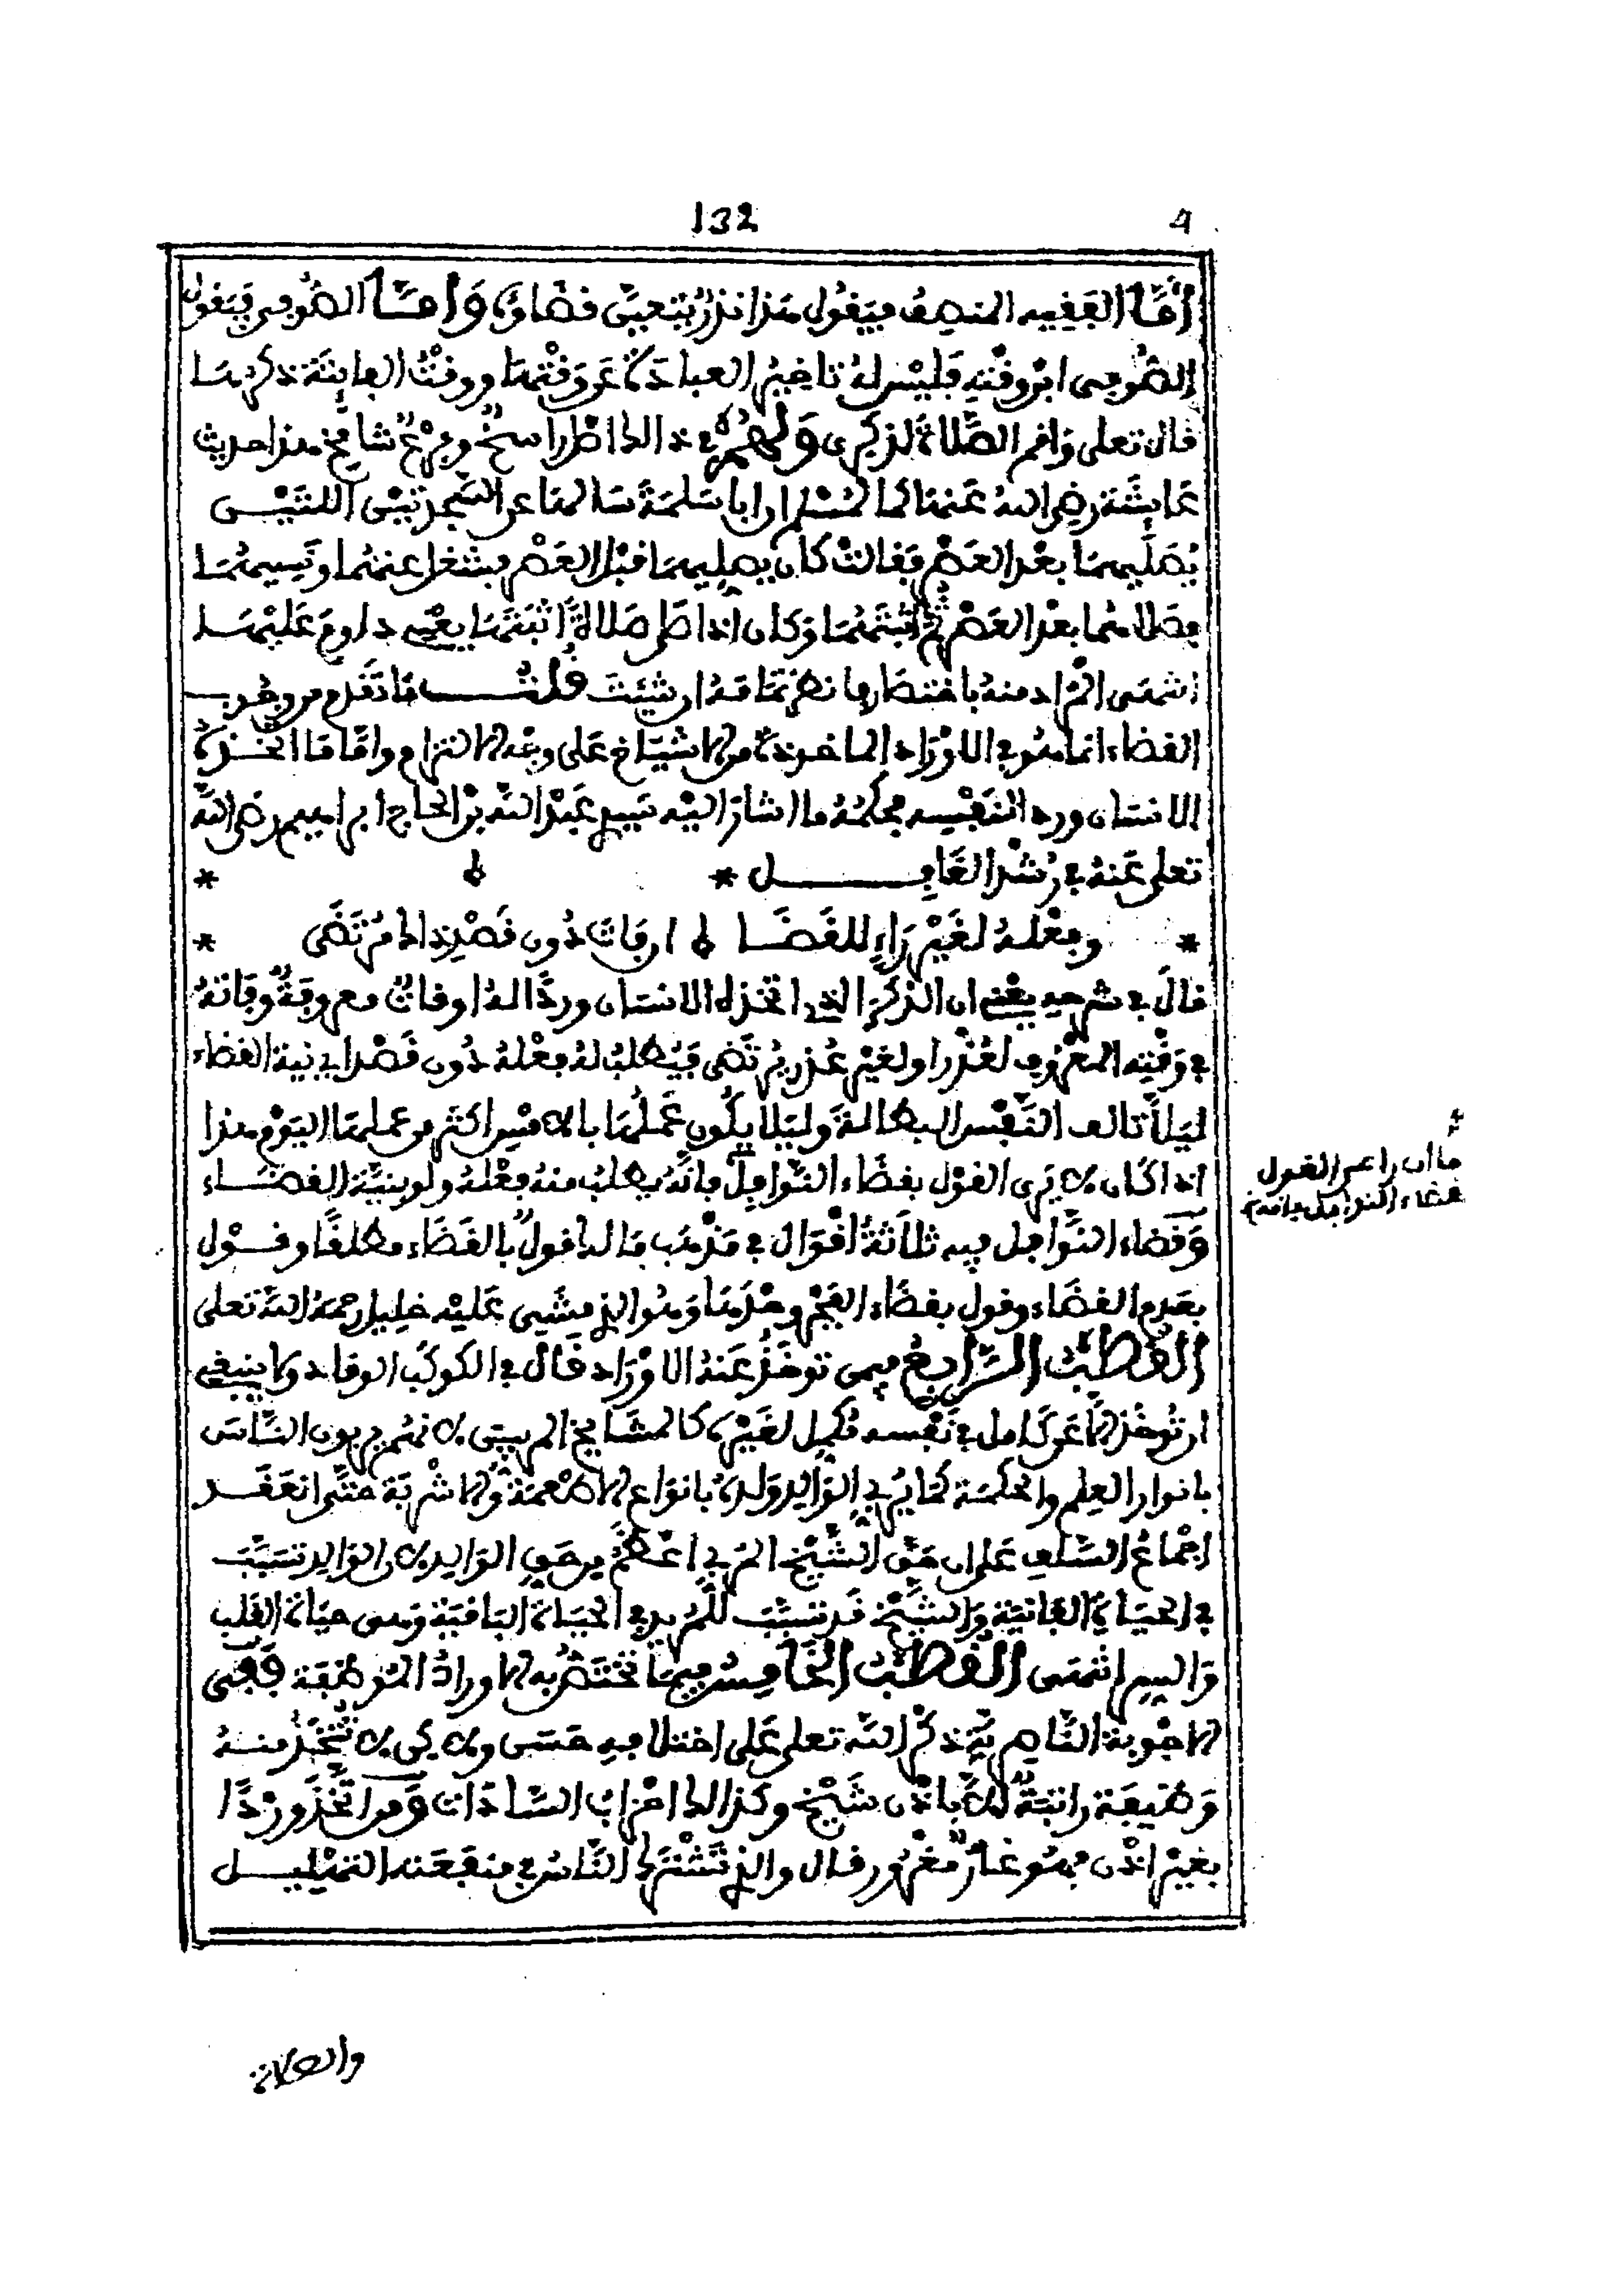 132
4
أمّا الفقيه المنصف فيقول هذا نذر يتعين قضاؤه وَأمَّا الصّوفي فيقول
الصّوفي ابن وقته فليس له تاخير العبادة عن وقتها ووقت الفائتة ذكرها
قال تعلى وأقم الصّلاة لذكري وَلهُم في ذالك اصل راسخ وفرع شامخ هذا حديث
عايشة رضي الله عنها كما لمسلم ان ابا سلمة سالها عن السجدتين اللتين
يصليهما بعد العصر فقالت كان يصليهما قبل العصر فشغل عنهما او نسيهما
فصلاهما بعد العصر ثم أثبتهما وكان اذا صلى صلاة اثبتها يعني داوم عليها
انتهى المراد منه باختصار فانظر تمامه ان شئت قلت ما تقدم من وجوب
القضاء انما هو في الاوراد الماخوذة من الاشياخ على وجه الالتزام واما ما اتخذه
الانسان ورد النفسه فحكمه ما اشار اليه سيد عبد الله بن الحاج ابراهيم رضي الله
تعلى عنه في رشد الغافل *
* وفعله لغير راء للقضا ان فات دون قصد ذاك مرتضى *
قال في شرحه يعني ان الذكر الذي اتخذه الانسان وردا له اوقات معروفة وفاته
في وقته المعروف لعذر او لغير عذر يرتضى فيطلب له فعله دون قصد اي نية القضاء
ليلا تالف النفس البطالة وليلا يكون عملها بالامس اكثر من عملها اليوم هذا
اذا كان لا يرى القول بقضاء النوافل فانه يطلب منه فعله ولو بنية القضاء
وقضاء النوافل فيه ثلاثة أقوال في مذهب مالك قول بالقضاء مطلقا وقول
بعدم القضاء وقول بقضاء الفجر وحدها وهو الذي مشى عليه خليل رحمه الله تعلى
القطب الرابع فيمن توخذ عنه الاوراد قال في الكوكب الوقاد ولا ينبغي
ان توخذ الا عن كامل في نفسه مكمل لغيره كالمشايخ المربين لانهم يربون الناس
بانوار العلم والحكمة كما يربي الوالد ولده بانواع الاطعمة والاشربة حتى انعقد
اجماع السلف على ان حق الشيخ المربي اعظم من حق الوالد لان الوالد تسبب
في الحياة الفانية والشيخ قد تسبب للمريد في الحياة الباقية وهي حياة القلب
والسر انتهى القطب الخامس فيما تختص به الاوراد الموظفة ففي
الاجوبة الناصرية ذكر الله تعلى على اختلافه حسن ولاكن لا تتخذ منه
وظيفة راتبة الا باذن شيخ وكذالك احزاب السادات ومن اتخذ وردا
بغير اذن فهو غار مغرور قال والذي تشترك الناس في منفعته التهليل
ما ان راعى القول
قضاء النوافل
والصلاة